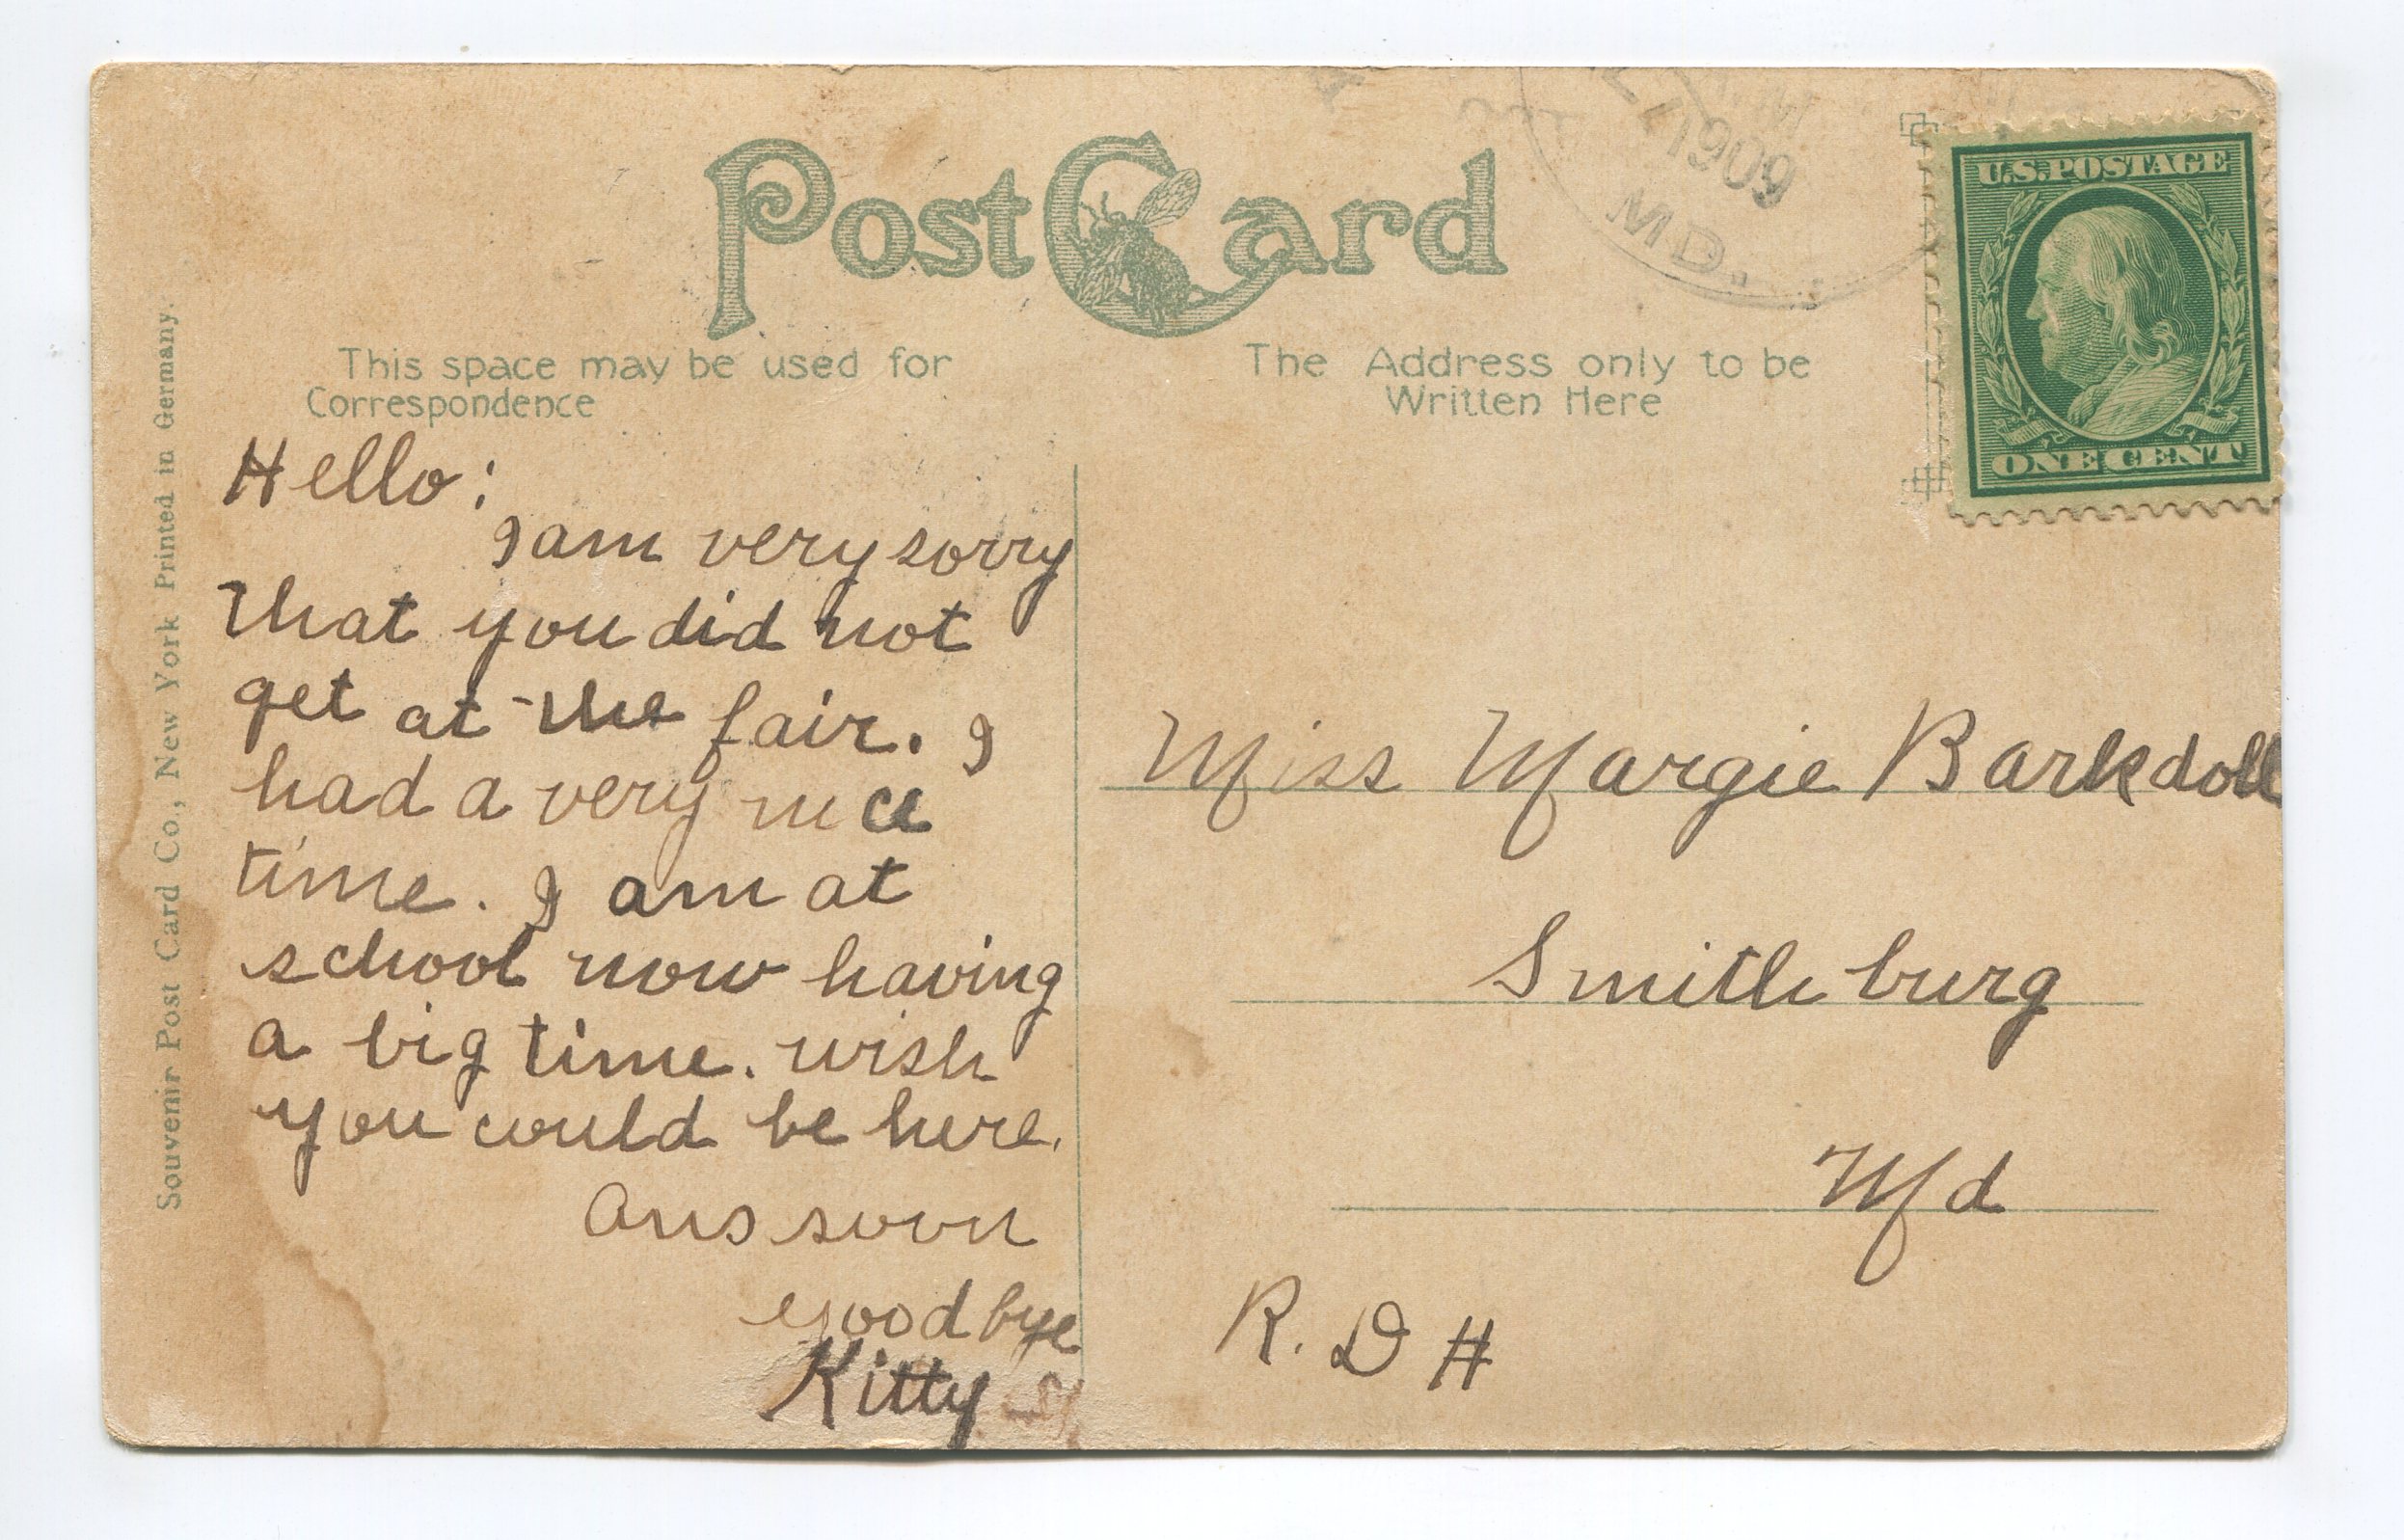 Post Card
This space may be used for
Correspondence
The Address only to be
Written Here
1909
MD.
U.S. POSTAGE
ONE CENT
Souvenir Post Card Co., New York Printed in Germany.
Hello:
I am very sorry
that you did not
get at the fair. I
had a very nice
time. I am at
school now having
a big time. wish
you could be here.
Ans soon
goodbye
Kitty
Miss Margie Barkdoll
Smithburg
Md
R. D #